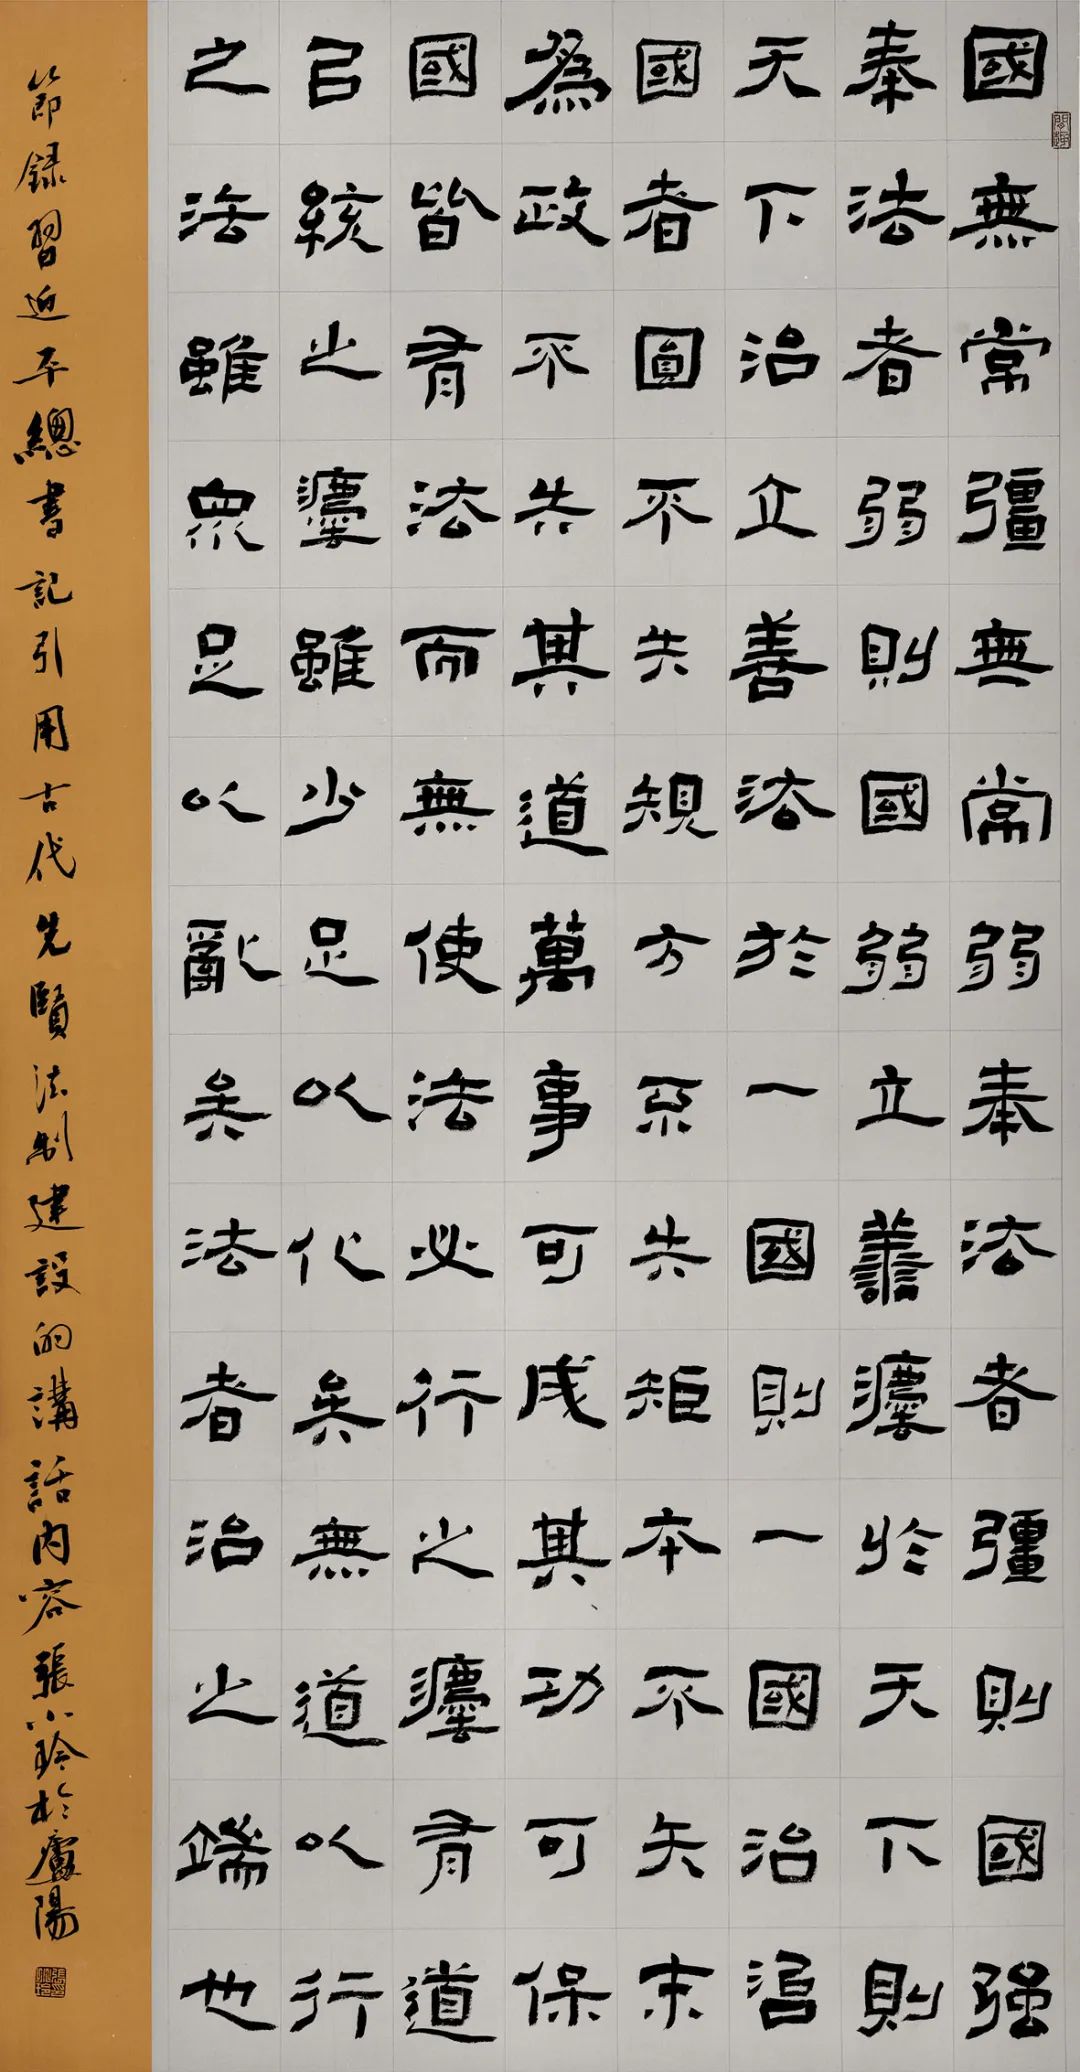 國無常彊無常弱奉法者彊則國强
奉法者弱則國弱立譱灋於天下則
天下治立善法於一國則一國治治
國者圓不失規方不失矩本不失末
爲政不失其道萬事可成其功可保
國皆有法而無使法必行之灋有道
㠯統之灋雖少足以化矣無道以行
之法雖眾足以亂矣法者治之端也
節録習近平總書記引用古代先賢法制建設的講話内容張小玲於廬陽